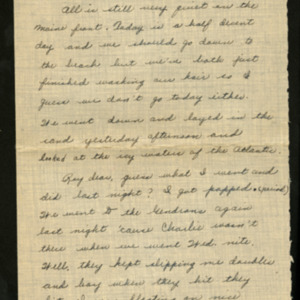 All is still very quiet on the
Maine front. Today is a half decent
day and we should go down to
the beach but we've both just
finished washing our hair so I
guess we don't go today either.
We went down and layed in the
sand yesterday afternoon and
looked at the icy waters of the Atlantic.
Roy dear, guess what I went and
did last night? I got popped.
We went to the Gendrons again
last night 'cause Charlie wasn't
there when we went Wed. nite.
Well, they kept slipping me doubles
and boy when they hit they
hit